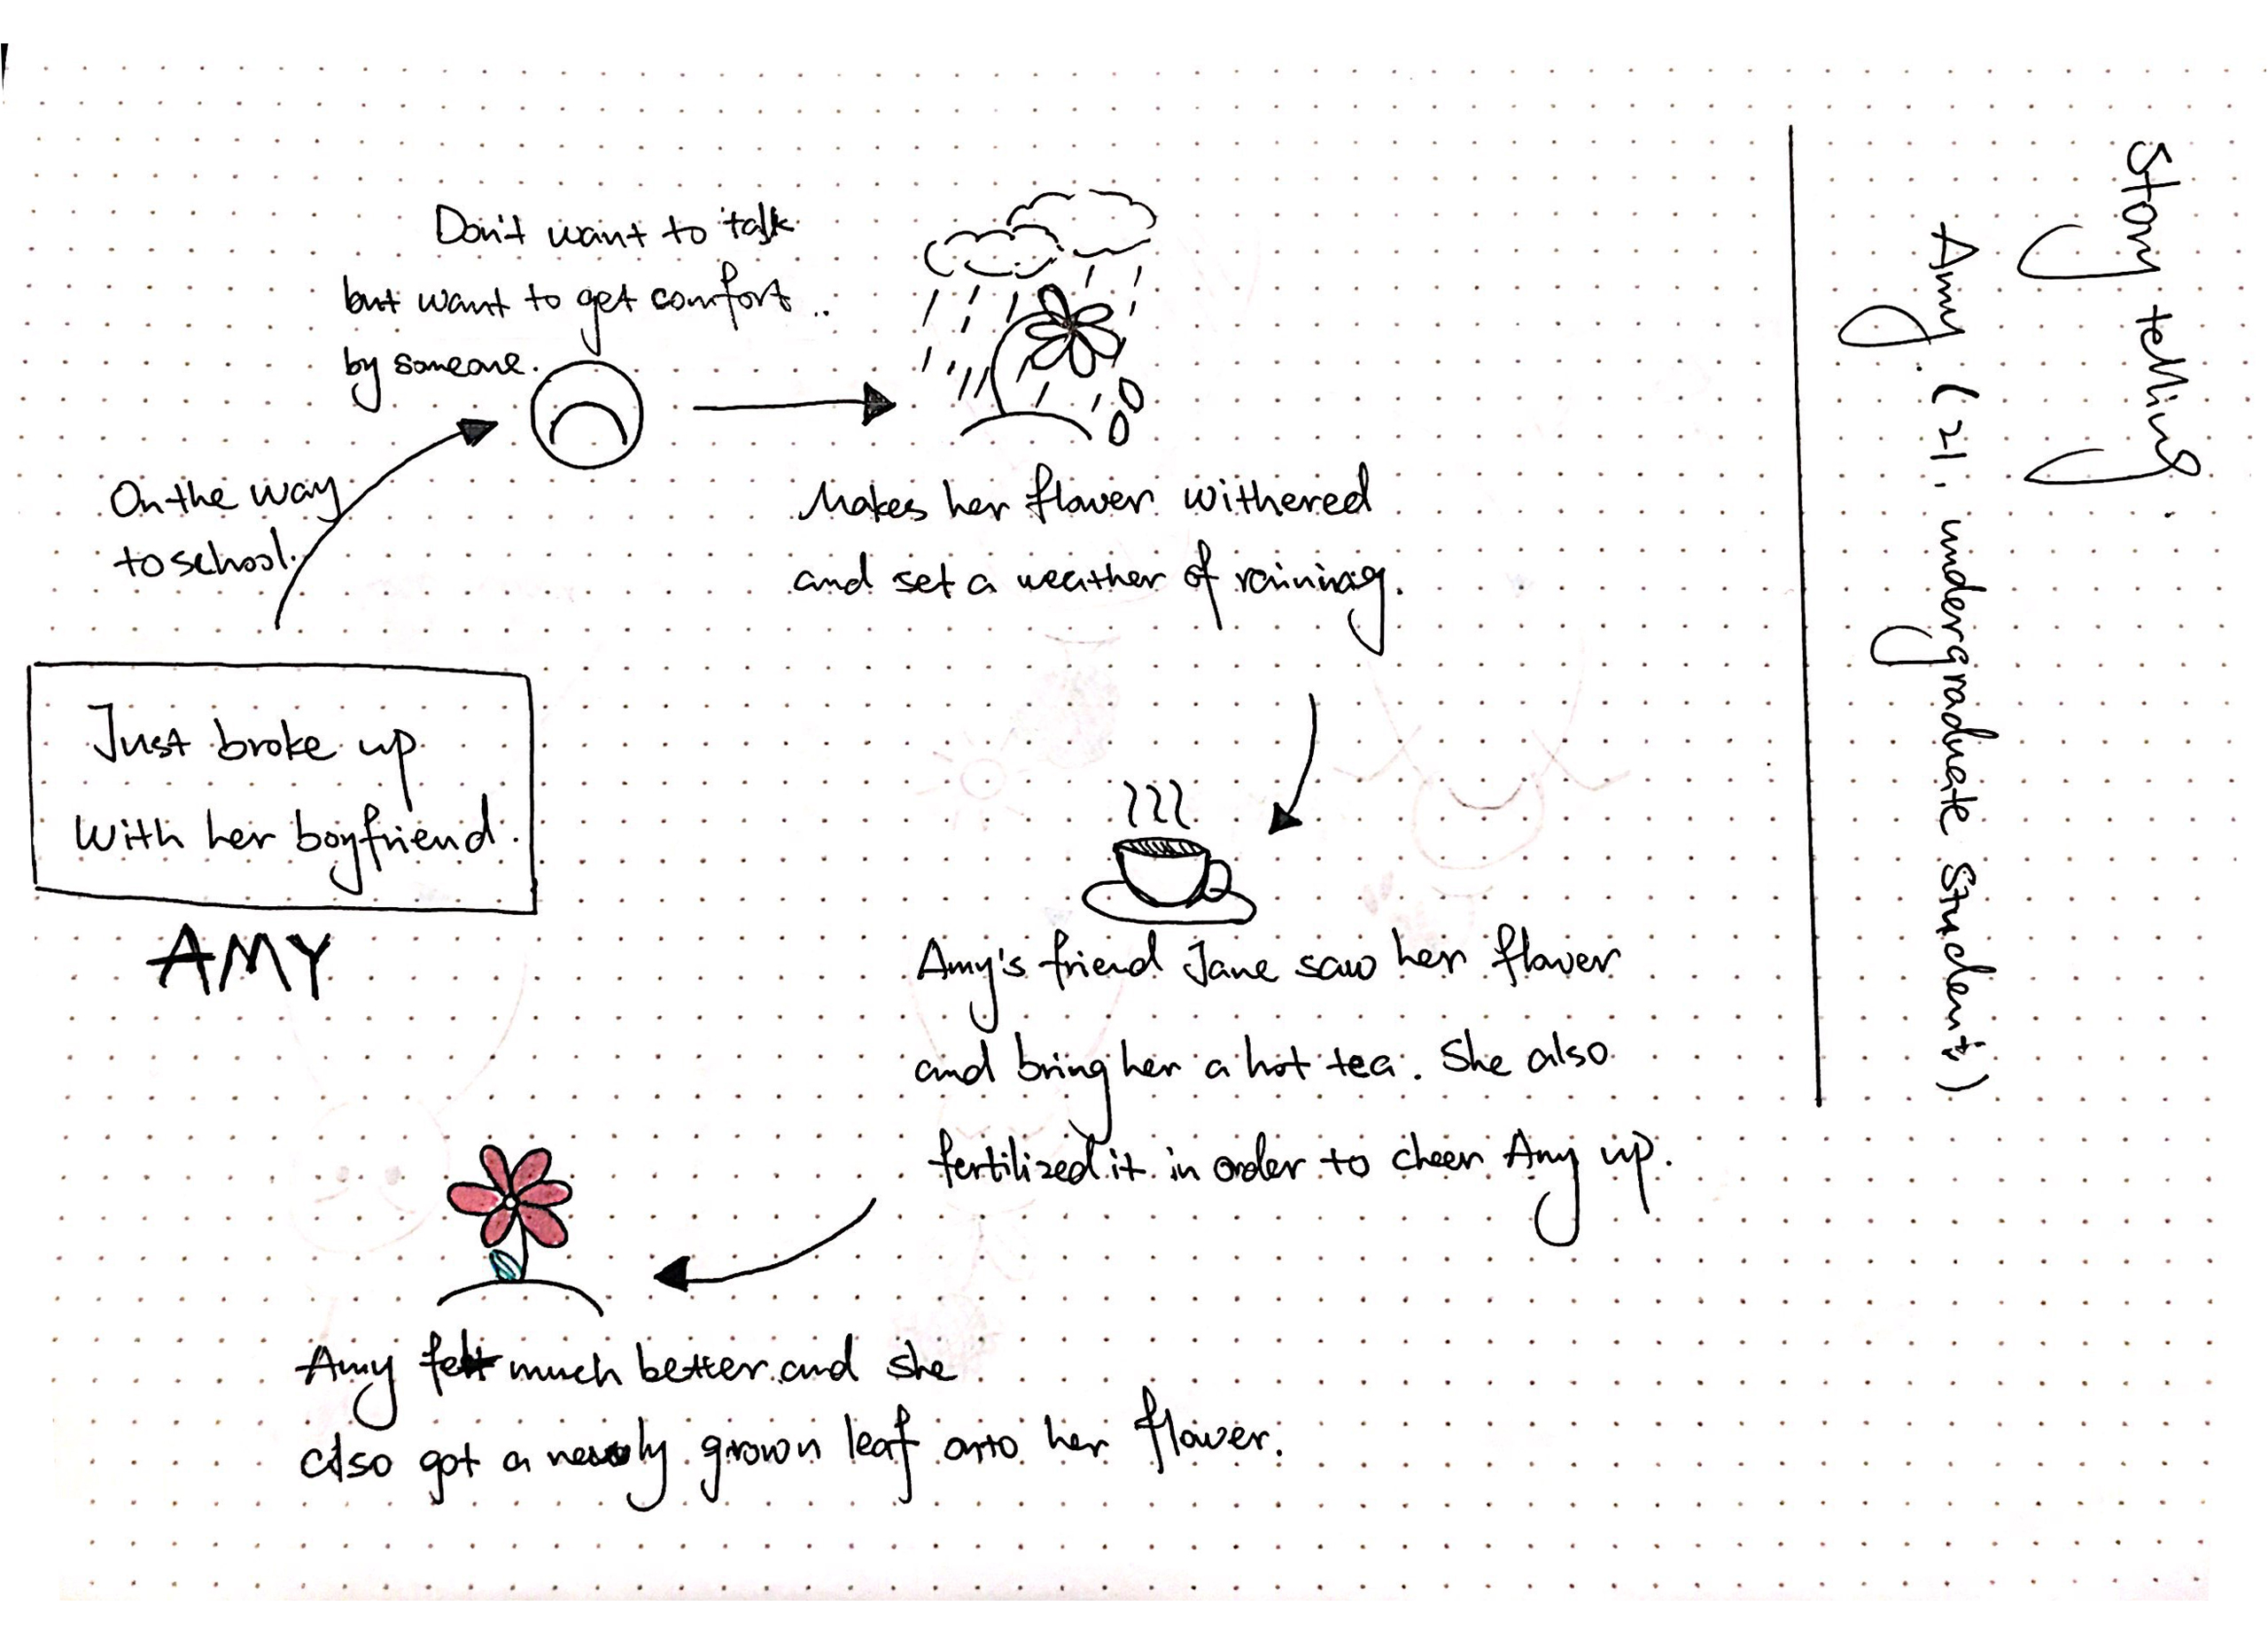 Story telling.
Amy. (21, undergraduate student)
Just broke up
with her boyfriend.
AMY
On the way
to school.
Don't want to talk
but want to get comfort..
by someone.
Makes her flower withered
and set a weather of raining.
Amy's friend Jane saw her flower
and bring her a hot tea. She also
fertilized it in order to cheer Amy up.
Amy felt much better and she
also got a newly grown leaf onto her flower.